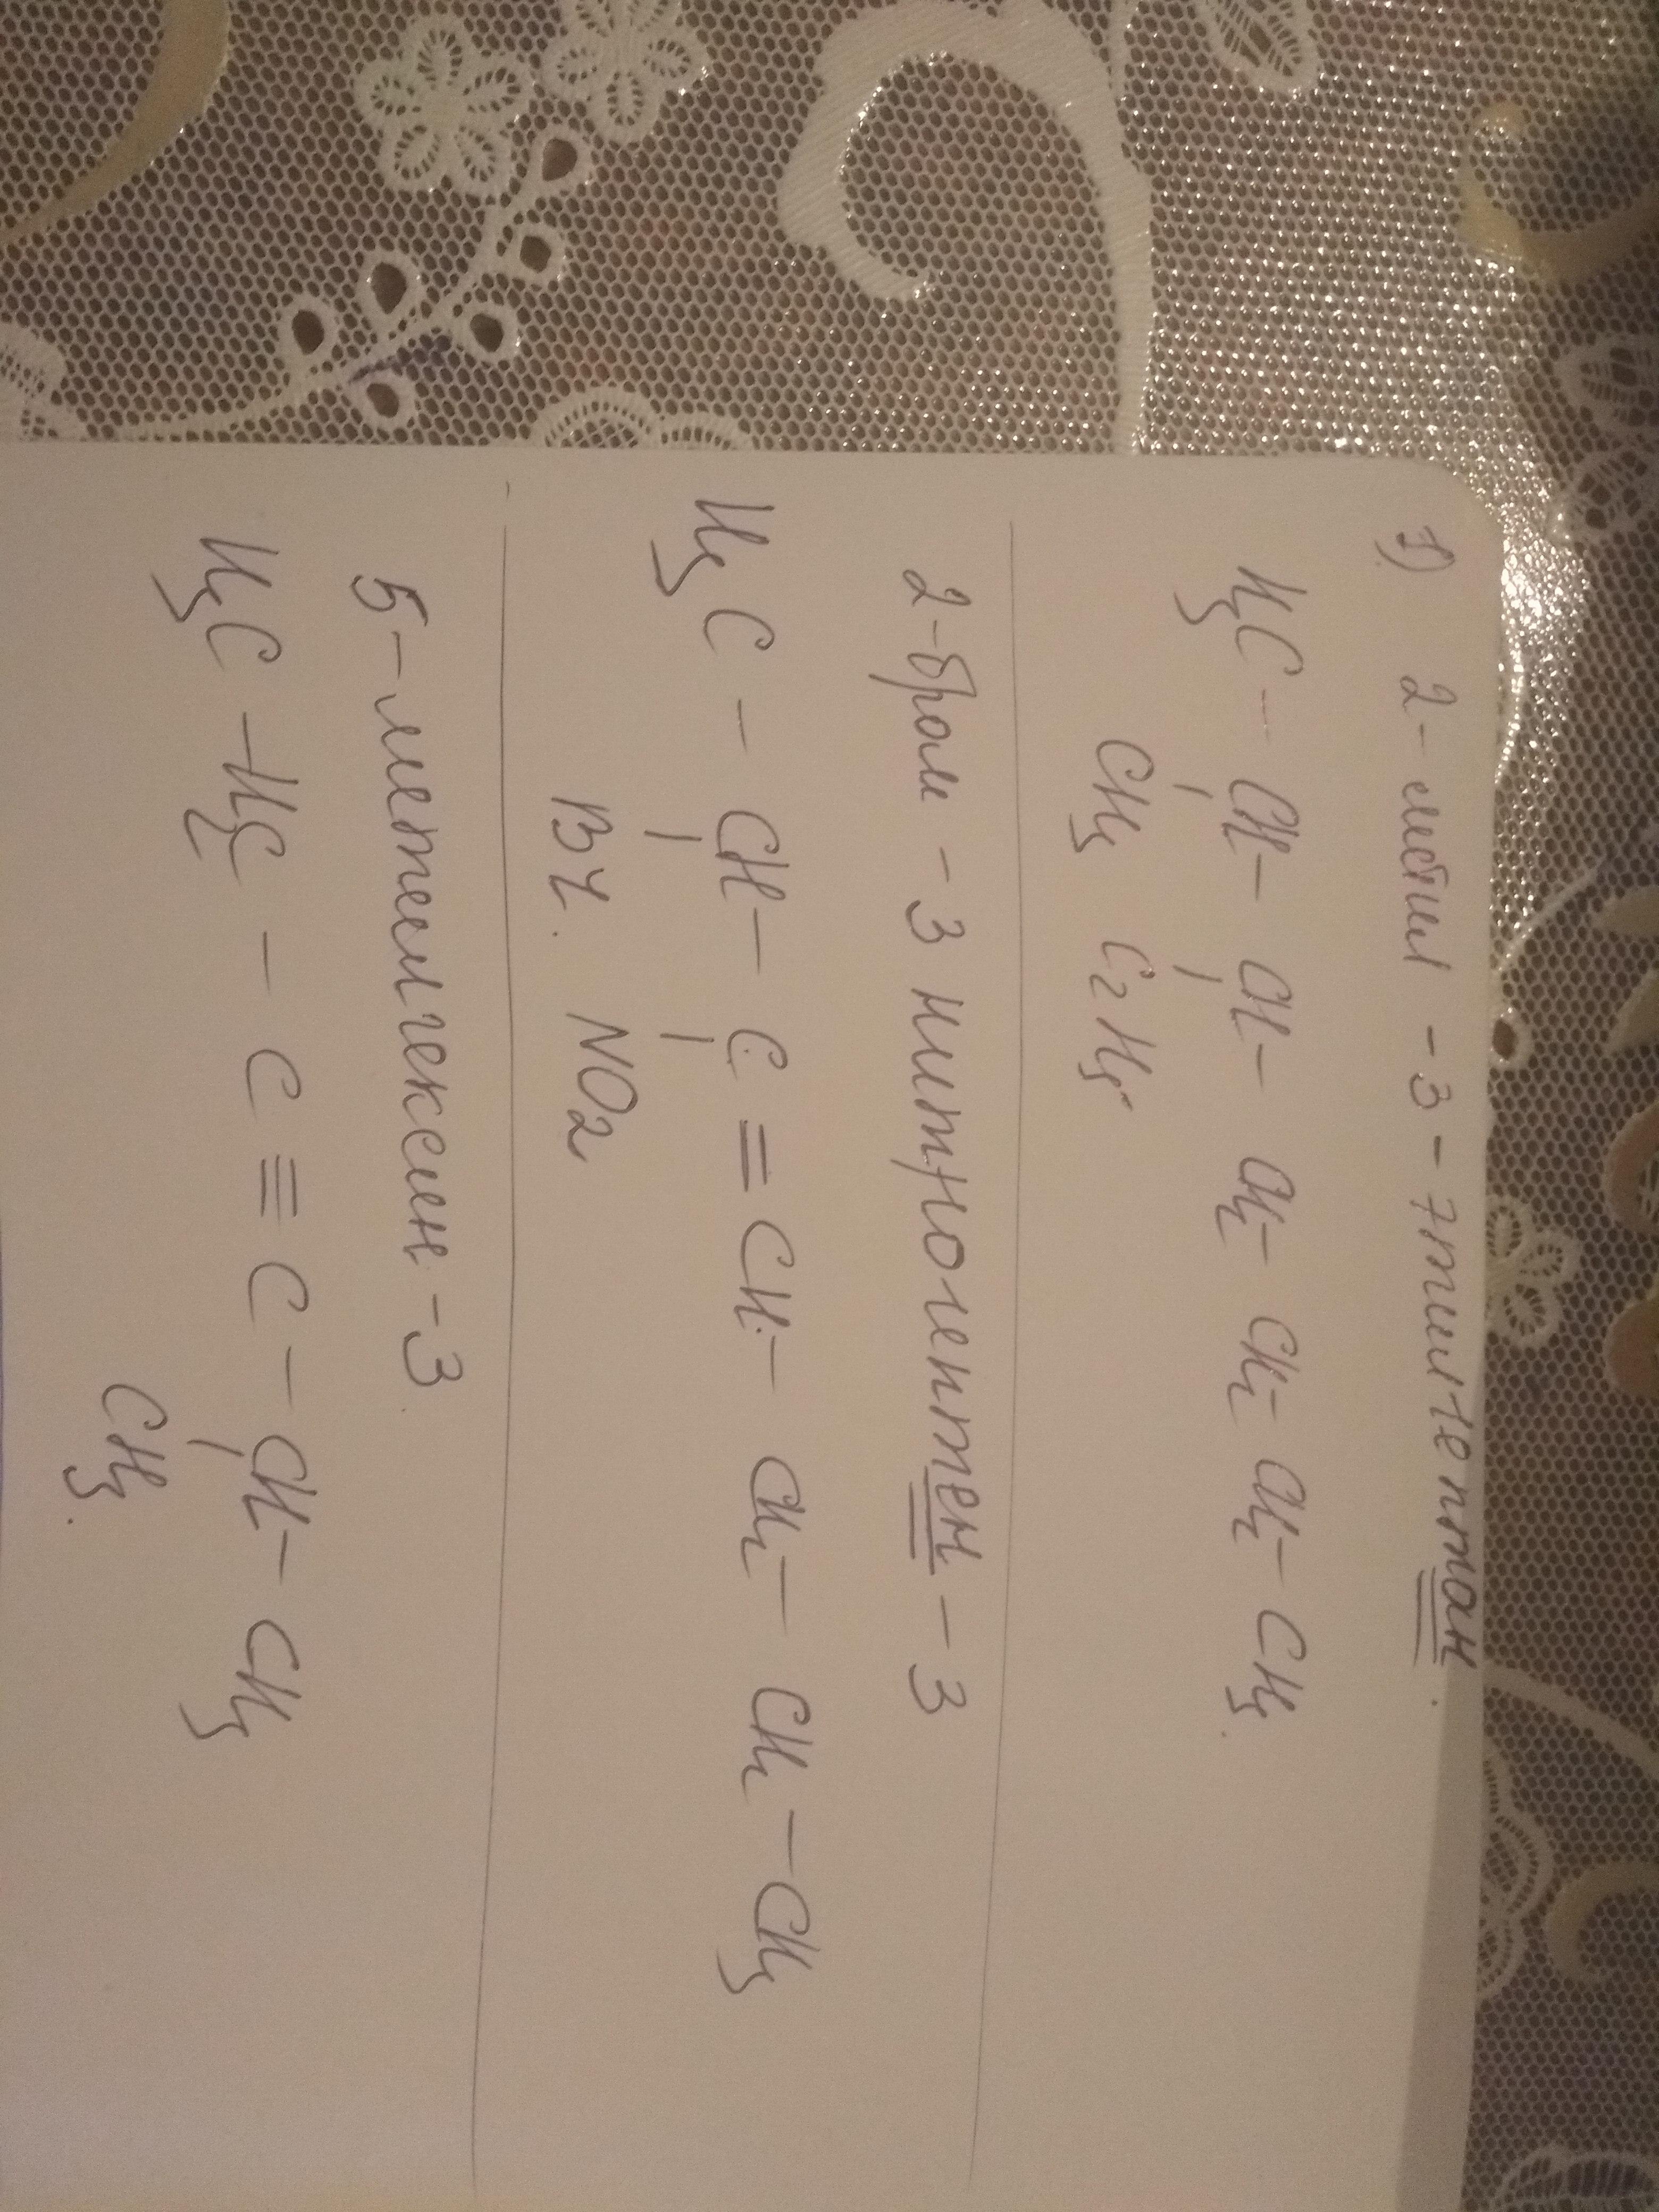 1) 2-метил-3-этилгептан.
H3C-CH-CH-CH2-CH2-CH2-CH3.
CH3 C2H5.
2-бром-3 нитрогептен-3
H3C-CH-C=CH-CH2-CH2-CH3
Br. NO2
5-метилгексин-3.
H3C-H2C-C≡C-CH-CH3
CH3.